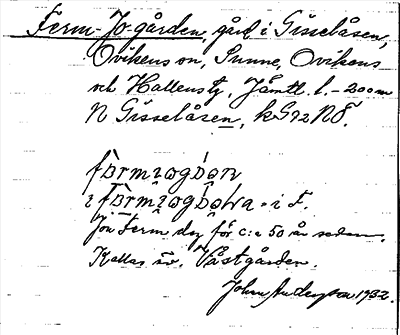 Ferm-Jo-gården, gård i Gisselåsen,
Ovikens sn, Sunne, Ovikens
och Hallens tg, Jämtl. l. - 200 m
N Gisselåsen, kG72NÖ.
i F.
Jon Ferm dog för c:a 50 år sedan.
Kallas äv. Västgården.
John Anderson 1932.